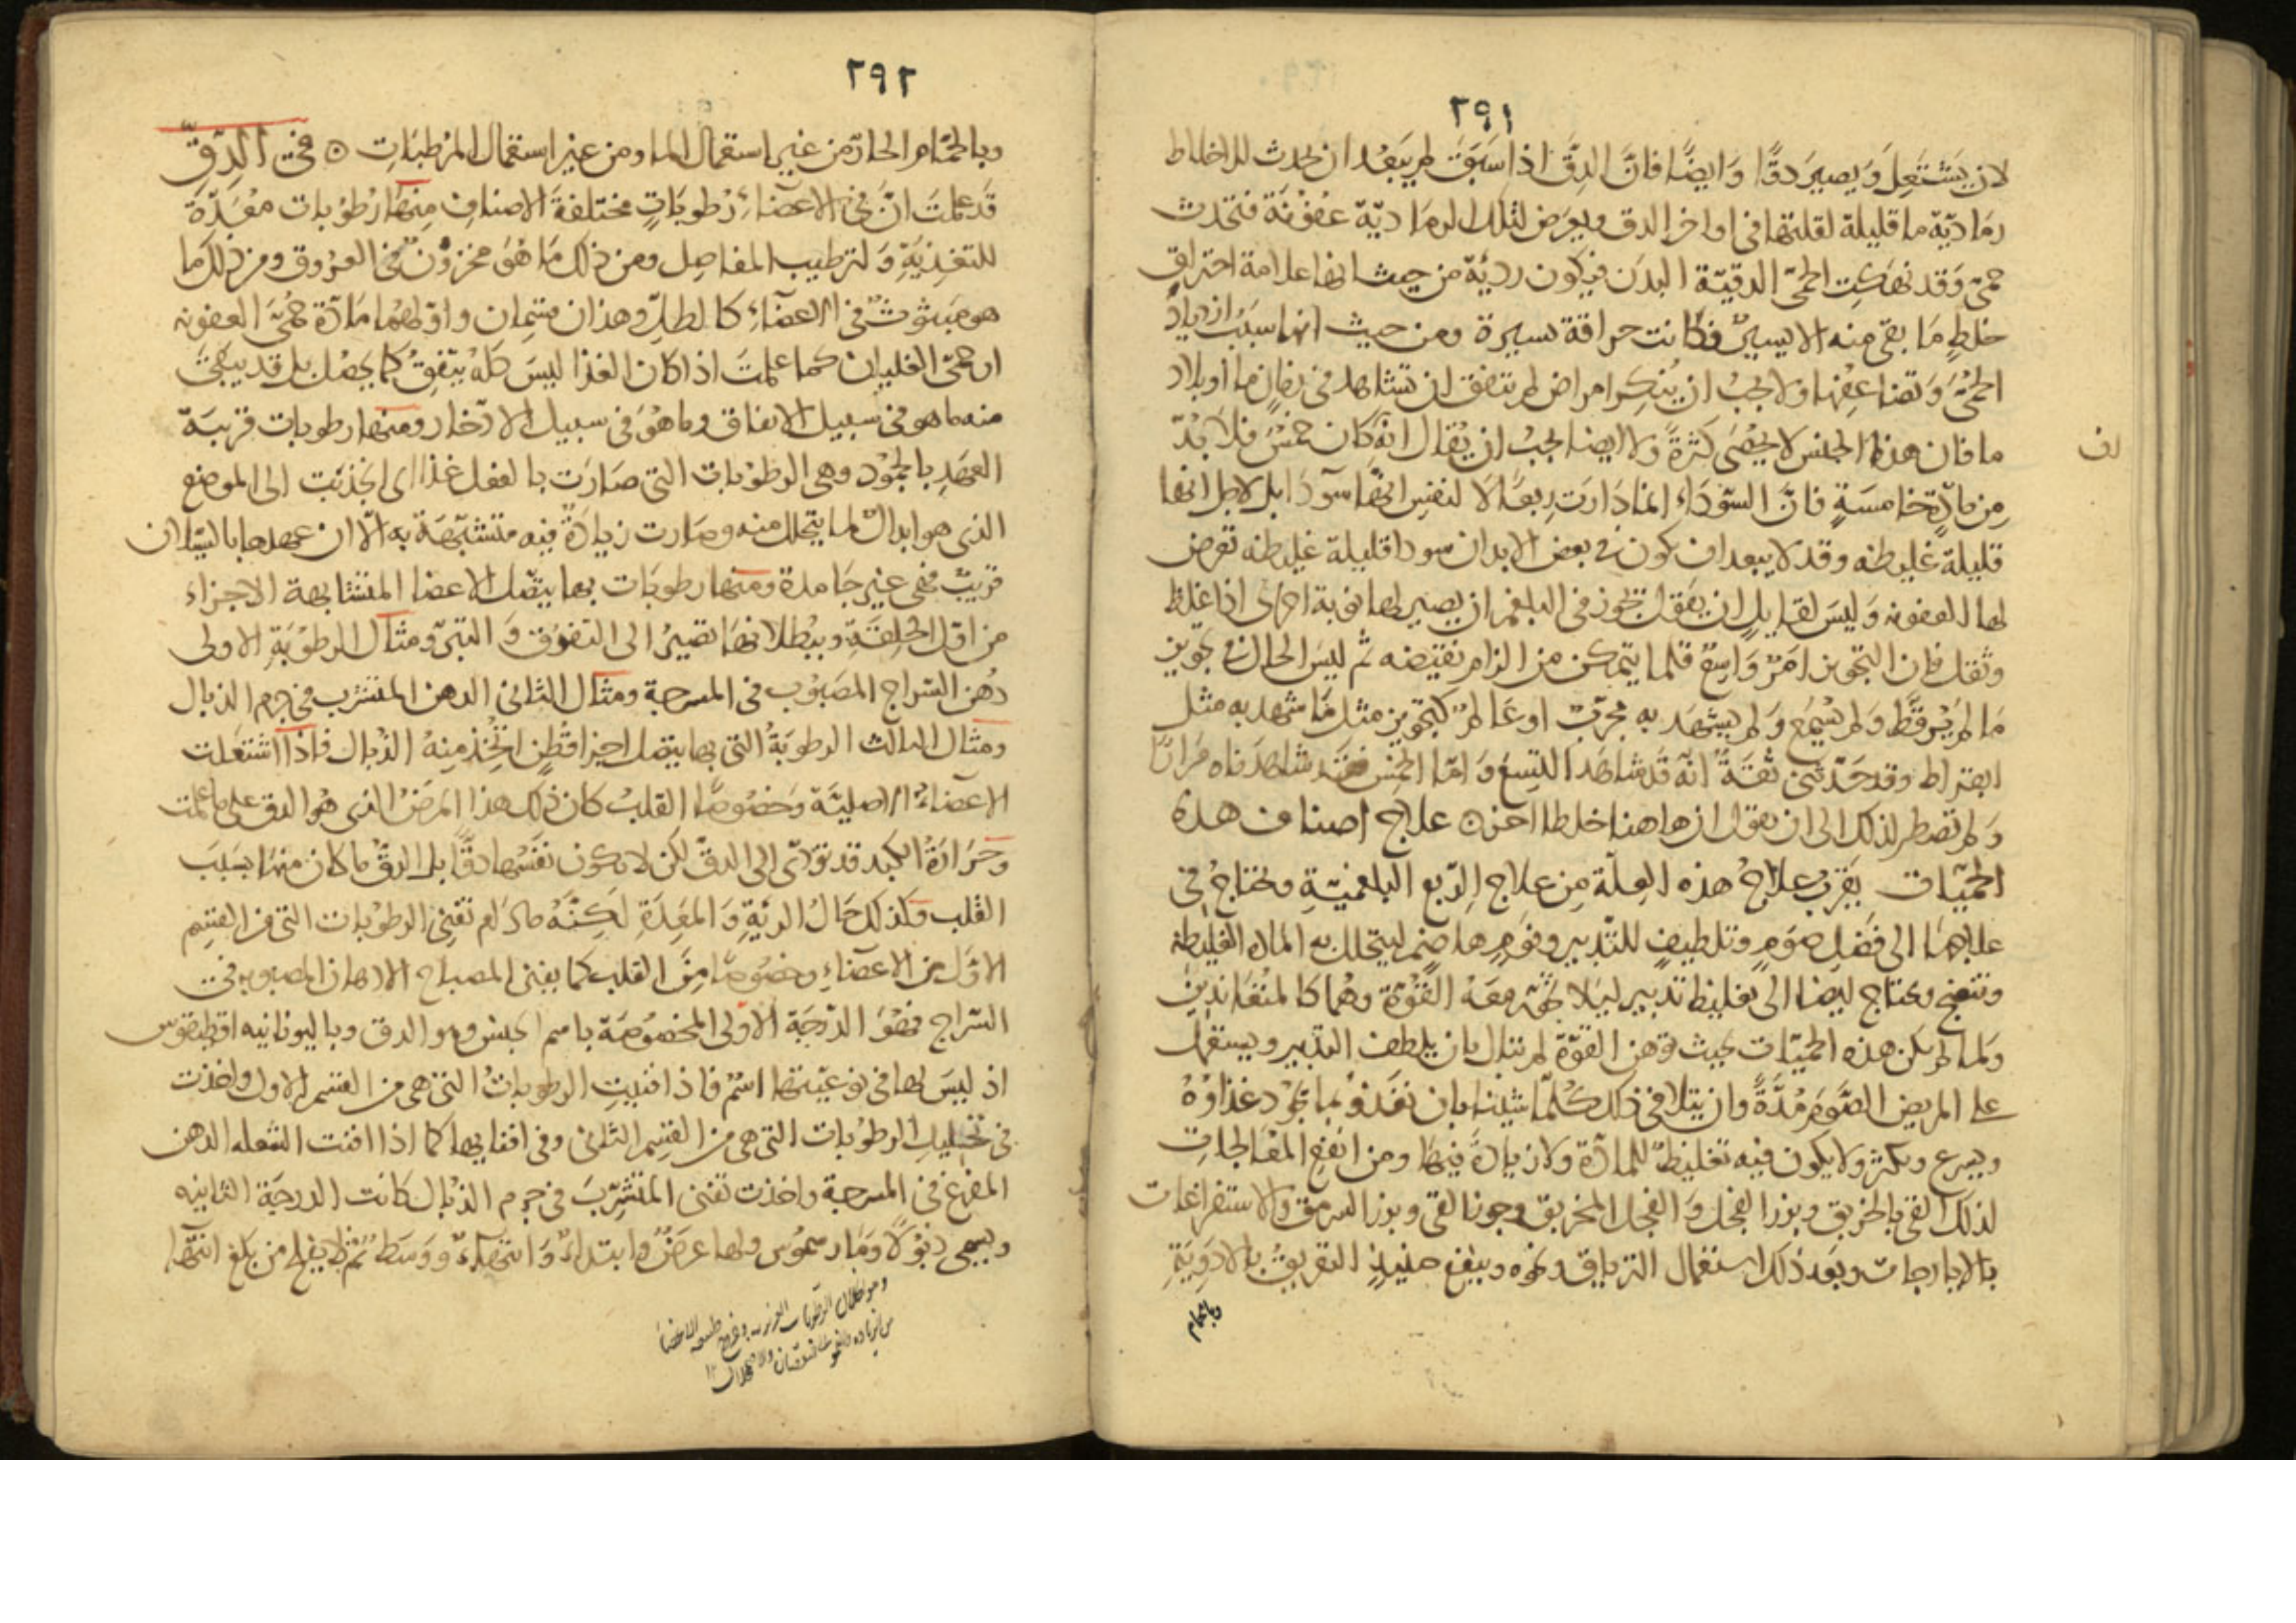 ٢٩١
لان يشتعل ويصير دقا وايضا فان الدق اذا سبق لم يبعد ان يحدث للاخلاط
رمادية ما قليلة لقلتها في اواخر الدق ويعرض لتلك الرمادية عفونة فتحدث
حمى وقد نهكت الحمى الدقية البدن فيكون ردية من حيث انها علامة احتراق
خلط ما بقى منه الا يسير فكانت حراقة يسيرة ومن حيث انها سبب ازدياد
الحمى وتضاعفها ولا يجب ان ينكر امراض لم يتفق ان تشاهد في زمان ما او بلاد
ما فان هذا الجنس لا يحصى كثرة ولا ايضا يجب ان يقال انه كان خمس فلا بد
من مادة خامسة فان السوداء انما دارت ربعا لا لنفس انها سودا بل لاجل انها
قليلة غليظه وقد لا يبعد ان يكون في بعض الابدان سودا قليلة غليظه تعرض
لها العفونه وليس لقايل ان يقول تجوز في البلغم ان يصير لها نوبة اخرى اذا غلظ
وثقل فان التجويز امر واسع قلما يتمكن من الزام نقيضه ثم ليس الحال في تجويز
ما لم ير قط ولم يسمع ولم يشهد به مجرب او عالم كتجويز مثل ما شهد به مثل
ابقراط وقد حدثني ثقة انه قد شاهد التسع واما الخمس فقد شاهدناه مرارا
ولم نضطر لذلك الى ان نقول ان هاهنا خلطا اخر ۞ علاج اصناف هذه
الحميات يقرب علاج هذه العلة من علاج الربع البلغمية ويحتاج في
علاجها الى فضل صوم وتلطيف للتدبير ونوم هاضم ليتحلل به الماده الغليظه
وتنضج ويحتاج ايضا الى تغليظ تدبير ليلا تخور معه القوة وهما كالمتعاندين
ولما لم يكن هذه الحميات بحيث توهن القوة لم نبال بان يلطف التدبير ويستعمل
على المريض الصوم مدة وان يتلافى ذلك كلما شينا بان نغذو بما يجود غذاؤه
ويسرع ويكثر ولا يكون فيه تغليظ للمادة ولا زيادة فيها ومن انفع المعالجات
لذلك القي بالخربق وبزر الفجل والفجل المخربق وجوز القي وبزر السرمق والاستفراغات
بالايارجات وبعد ذلك استعمال الترياق ونحوه وينفع حينيذ التعريق بالادوية
وبالحمام
اف
٢٩٢
وبالحمام الحار من غير استعمال الما ومن غير استعمال المرطبات ۞ في الدق
قد علمت ان في الاعضاء رطوبات مختلفة الاصناف منها رطوبات معدة
للتغذية ولترطيب المفاصل ومن ذلك ما هو مخزون في العروق ومن ذلك ما
هو مبثوث في الاعضاء كالطل وهذان قسمان واولهما مادة حمى العفونه
او حمى الغليان كما علمت اذا كان الغذا ليس كله يتفق كما يحصل بل قد يبقى
منه ما هو في سبيل الانفاق وما هو في سبيل الادخار ومنها رطوبات قريبة
العهد بالجمود وهي الرطوبات التي صارت بالفعل غذا اى انجذبت الى الموضع
الذى هو ابدال لما يتحلل منه وصارت زيادة فيه متشبهة به الا ان عهدها بالسيلان
قريب فهي غير جامدة ومنها رطوبات بها يتصل الاعضا المتشابهة الاجزاء
من اول الخلقة وببطلانها تصير الى التفرق والتبرى ومثال الرطوبة الاولى
دهن السراج المصبوب في المسرجة ومثال الثاني الدهن المتشرب في جرم الذبال
ومثال الثالث الرطوبة التي بها يتصل اجزا قطن اتخذ منه الذبال فاذا اشتعلت
الاعضاء الاصلية وخصوصا القلب كان ذلك هذا المرض الذى هو الدق على ما علمت
وحرارة الكبد قد تؤدى الى الدق لكن لا يكون نفسها دقا بل الدق ما كان منها بسبب
القلب وكذلك حال الرية والمعدة لكنه مادام تفنى الرطوبات التي من القسم
الاول من الاعضاء وخصوصا من القلب كما يفنى المصباح الادهان المصبوبه في
السراج فهو الدرجة الاولى المخصوصة باسم الجنس وهو الدق وباليونانيه اقطيقوس
اذ ليس لها في نوعيتها اسم فاذا افنيت الرطوبات التي هي من القسم الاول واخذت
في تحليل الرطوبات التي هي من القسم الثاني وفي افنايها كما اذا افنت الشعله الدهن
المفرغ في المسرجة واخذت تفنى المتشرب في جرم الذبال كانت الدرجة الثانيه
ويسمى ذبولا ومارسموس ولها عرض وابتداء وانتهاء ووسط ثم لا يفلح من بلغ انتها